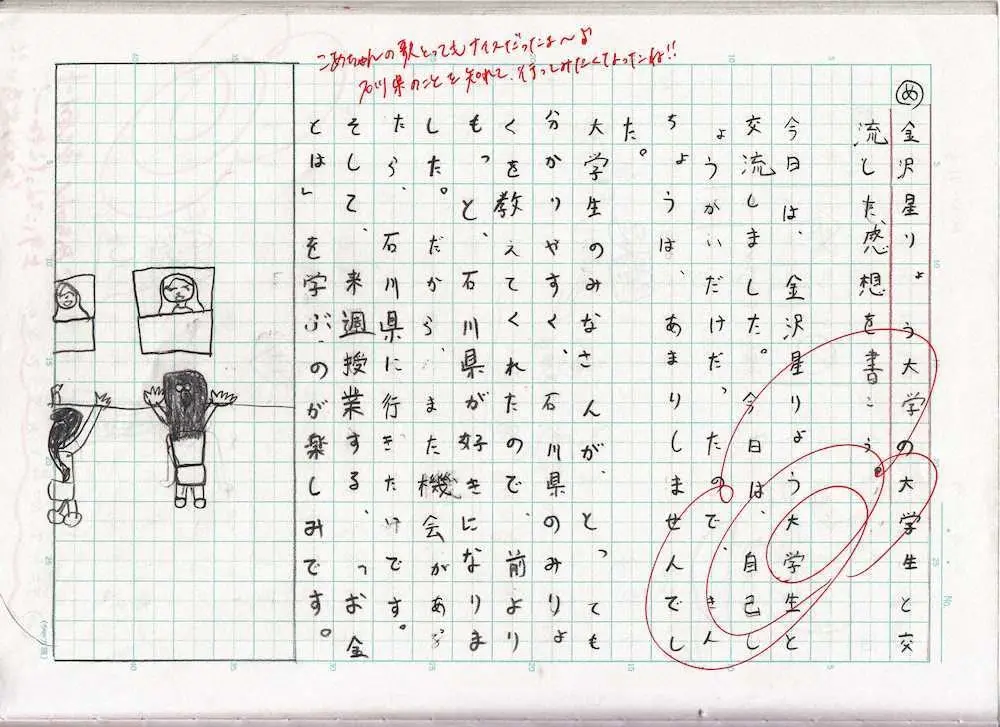 こめちゃんの歌とってもナイスだったよ〜♪
石川県のことを知れて、行ってみたくなったね!!
め
金沢星りょう大学の大学生と交
流した感想を書こう。
今日は、金沢星りょう大学生と
交流しました。今日は、自己し
ょうかいだけだったので、きん
ちょうは、あまりしませんでし
た。
大学生のみなさんが、とっても
分かりやすく、石川県のみりょ
くを教えてくれたので、前より
もっと、石川県が好きになりま
した。だから、また機会があっ
たら、石川県に行きたいです。
そして、来週授業する、「お金
とは」を学ぶのが楽しみです。
No.